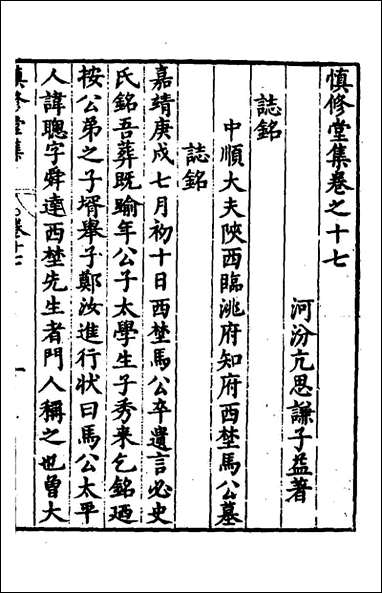 慎修堂集卷之十七
河汾亢思謙子益著
誌銘
中順大夫陝西臨洮府知府西埜馬公墓
誌銘
嘉靖庚戌七月初十日西埜馬公卒遺言必史
氏銘吾葬既踰年公子太學生子秀来乞銘廼
按公弟之子壻舉子鄭汝進行狀曰馬公太平
人諱聰字舜達西埜先生者門人稱之也曾大
慎修堂集
卷十七
一